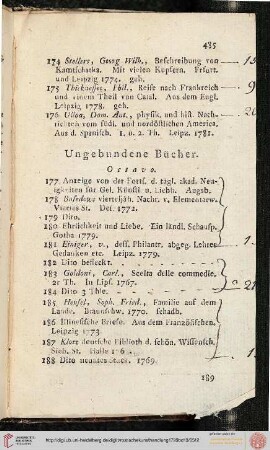 485
174 Stellers, Georg Wilh., Beschreibung von
Kamtschatka. Mit vielen Kupfern. Frfurt.
und Leipzig 1774. geb.
175 Thickneßes, Phil., Reise nach Frankreich
und einem Theil von Catal. Aus dem Engl.
Leipzig 1778. geb.
176 Ulloa, Dom. Ant., physik. und hist. Nach-
richten vom südl. und nordöstlichen America.
Aus d. Spanisch. 1. u. 2. Th. Leipz. 1781.
Ungebundene Bücher.
Octavo.
177 Anzeige von der Fortf. d. tägl. akad. Neu-
igkeiten für Gel. Künstl u. Liebh. Augsb.
178 Basedows vierteljäh. Nachr. v. Elementarw.
Viertes St. Deß. 1772.
179 Dito.
180 Ehrlichkeit und Liebe. Ein ländl. Schausp.
Gotha 1779.
181 Ehniger, v., dess. Philantr. abgeg. Lehrer
Gedanken etc. Leipz. 1779.
182 Dito befleckt.
183 Goldoni, Carl., Scelta delle commedie.
2r Th. In Lipf. 1767.
184 Dito 3 Thle.
185 Hensel, Soph. Fried., Familie auf dem
Lande. Braunschw. 1770. schadh.
186 Elinysische Briefe. Aus dem Französischen.
Leipzig 1773.
187 Klotz deutsche Biblioth d. schön. Wissensch.
Sieb. St. Halle 176
188 Dito neuntes Stück. 1769.
189